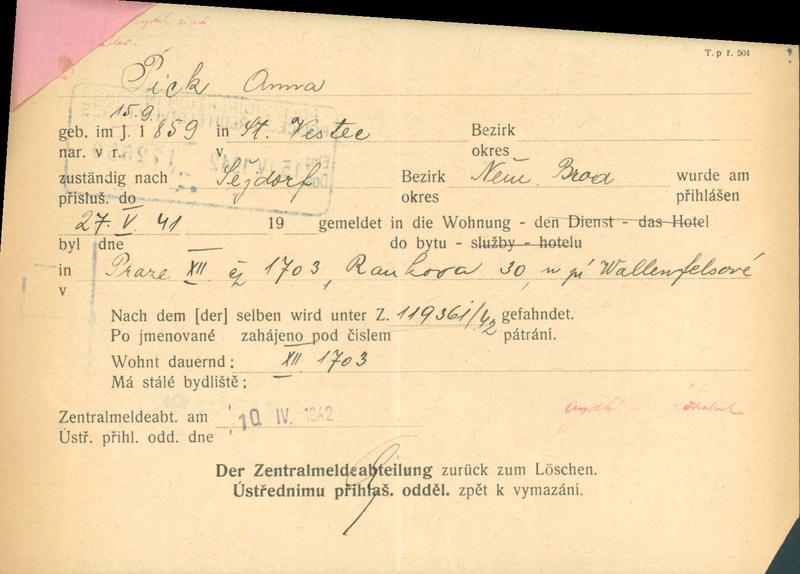 T. p ř. 501
Pick Anna
15.9.
geb. im J. 1859 in St. Vestec Bezirk
nar. v r. v okres
zuständig nach Šejdorf Bezirk Něm. Brod wurde am
přísluš. do okres přihlášen
27. V. 41 19 gemeldet in die Wohnung - den Dienst - das Hotel
byl dne do bytu - služby - hotelu
in Praze XII čj 1703, Rankova 30, u pí Wallenfelsové
v
Nach dem [der] selben wird unter Z. 119361/42 gefahndet.
Po jmenované zahájeno pod číslem pátrání.
Wohnt dauernd: XII. 1703
Má stálé bydliště:
Zentralmeldeabt. am 10 IV. 1942
Ústř. přihl. odd. dne
Der Zentralmeldeabteilung zurück zum Löschen.
Ústřednímu přihlaš. odděl. zpět k vymazání.